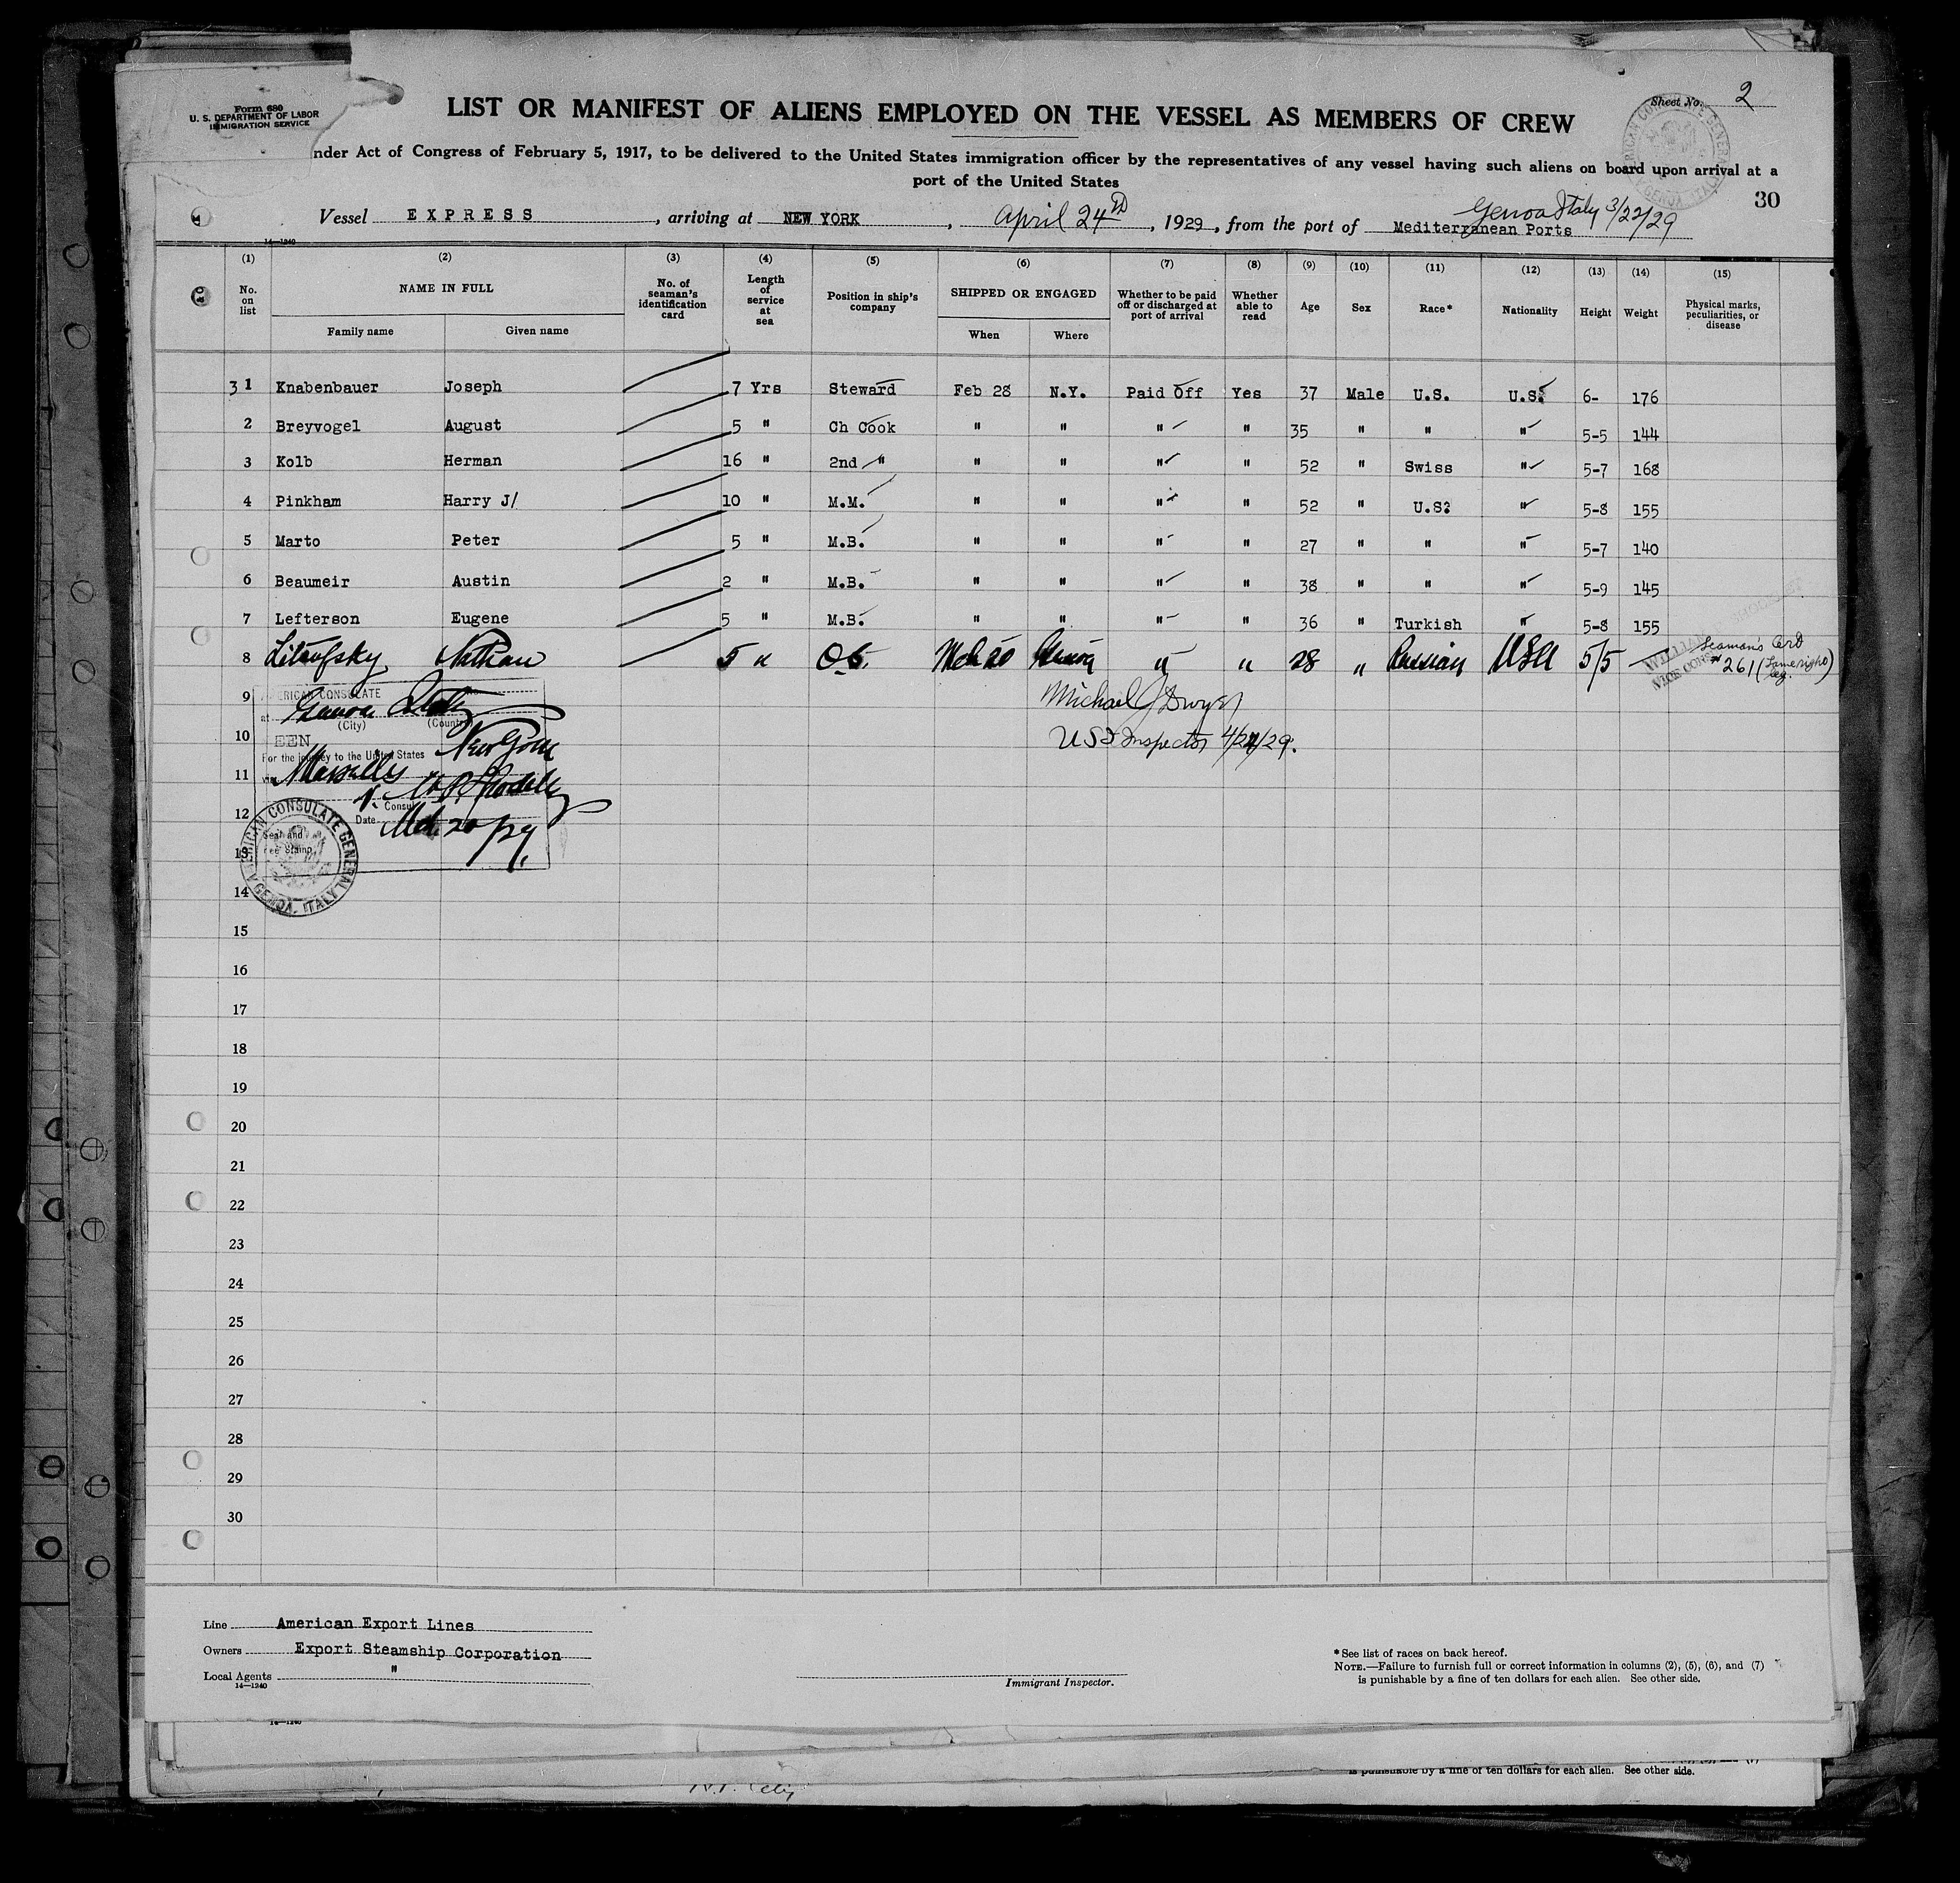 Form 680
U. S. DEPARTMENT OF LABOR
IMMIGRATION SERVICE
Sheet No. 2
LIST OR MANIFEST OF ALIENS EMPLOYED ON THE VESSEL AS MEMBERS OF CREW
nder Act of Congress of February 5, 1917, to be delivered to the United States immigration officer by the representatives of any vessel having such aliens on board upon arrival at a
port of the United States
30
Genoa Italy 3/22/29
Vessel EXPRESS, arriving at NEW YORK, April 24th, 1929, from the port of Mediterranean Ports
14—1240
(1) (2) (3) (4) (5) (6) (7) (8) (9) (10) (11) (12) (13) (14) (15)
No. on list NAME IN FULL No. of seaman's identification card Length of service at sea Position in ship's company SHIPPED OR ENGAGED Whether to be paid off or discharged at port of arrival Whether able to read Age Sex Race* Nationality Height Weight Physical marks, peculiarities, or disease
Family name Given name When Where
31 Knabenbauer Joseph 7 Yrs Steward Feb 28 N.Y. Paid Off Yes 37 Male U.S. U.S. 6- 176
2 Breyvogel August 5 " Ch Cook " " " " 35 " " " 5-5 144
3 Kolb Herman 16 " 2nd " " " " " 52 " Swiss " 5-7 168
4 Pinkham Harry J/ 10 " M.M. " " " " 52 " U.S? " 5-8 155
5 Marto Peter 5 " M.B. " " " " 27 " " " 5-7 140
6 Beaumeir Austin 2 " M.B. " " " " 38 " " " 5-9 145
7 Lefterson Eugene 5 " M.B. " " " " 36 " Turkish " 5-8 155
8 Litoufsky Nathan 5 " O.S. Mch 20 Genoa " " 28 " Russian USA 5/5 Seaman's Crd
# 261 (Lame right leg.)
9
AMERICAN CONSULATE
at Genoa Italy
(City) (Country)
Michael J Dwyer
10
SEEN
For the journey to the United States New York
US Inspector 4/24/29.
11
via Marseilles
12
Consul
Date Mch 20/29.
13
Seal and
Fee Stamp
AMERICAN CONSULATE GENERAL
GENOA, ITALY
14
15
16
17
18
19
20
21
22
23
24
25
26
27
28
29
30
Line American Export Lines
Owners Export Steamship Corporation
Local Agents "
14—1240
Immigrant Inspector.
* See list of races on back hereof.
NOTE.—Failure to furnish full or correct information in columns (2), (5), (6), and (7)
is punishable by a fine of ten dollars for each alien. See other side.
14—1240
is punishable by a fine of ten dollars for each alien. See other side.